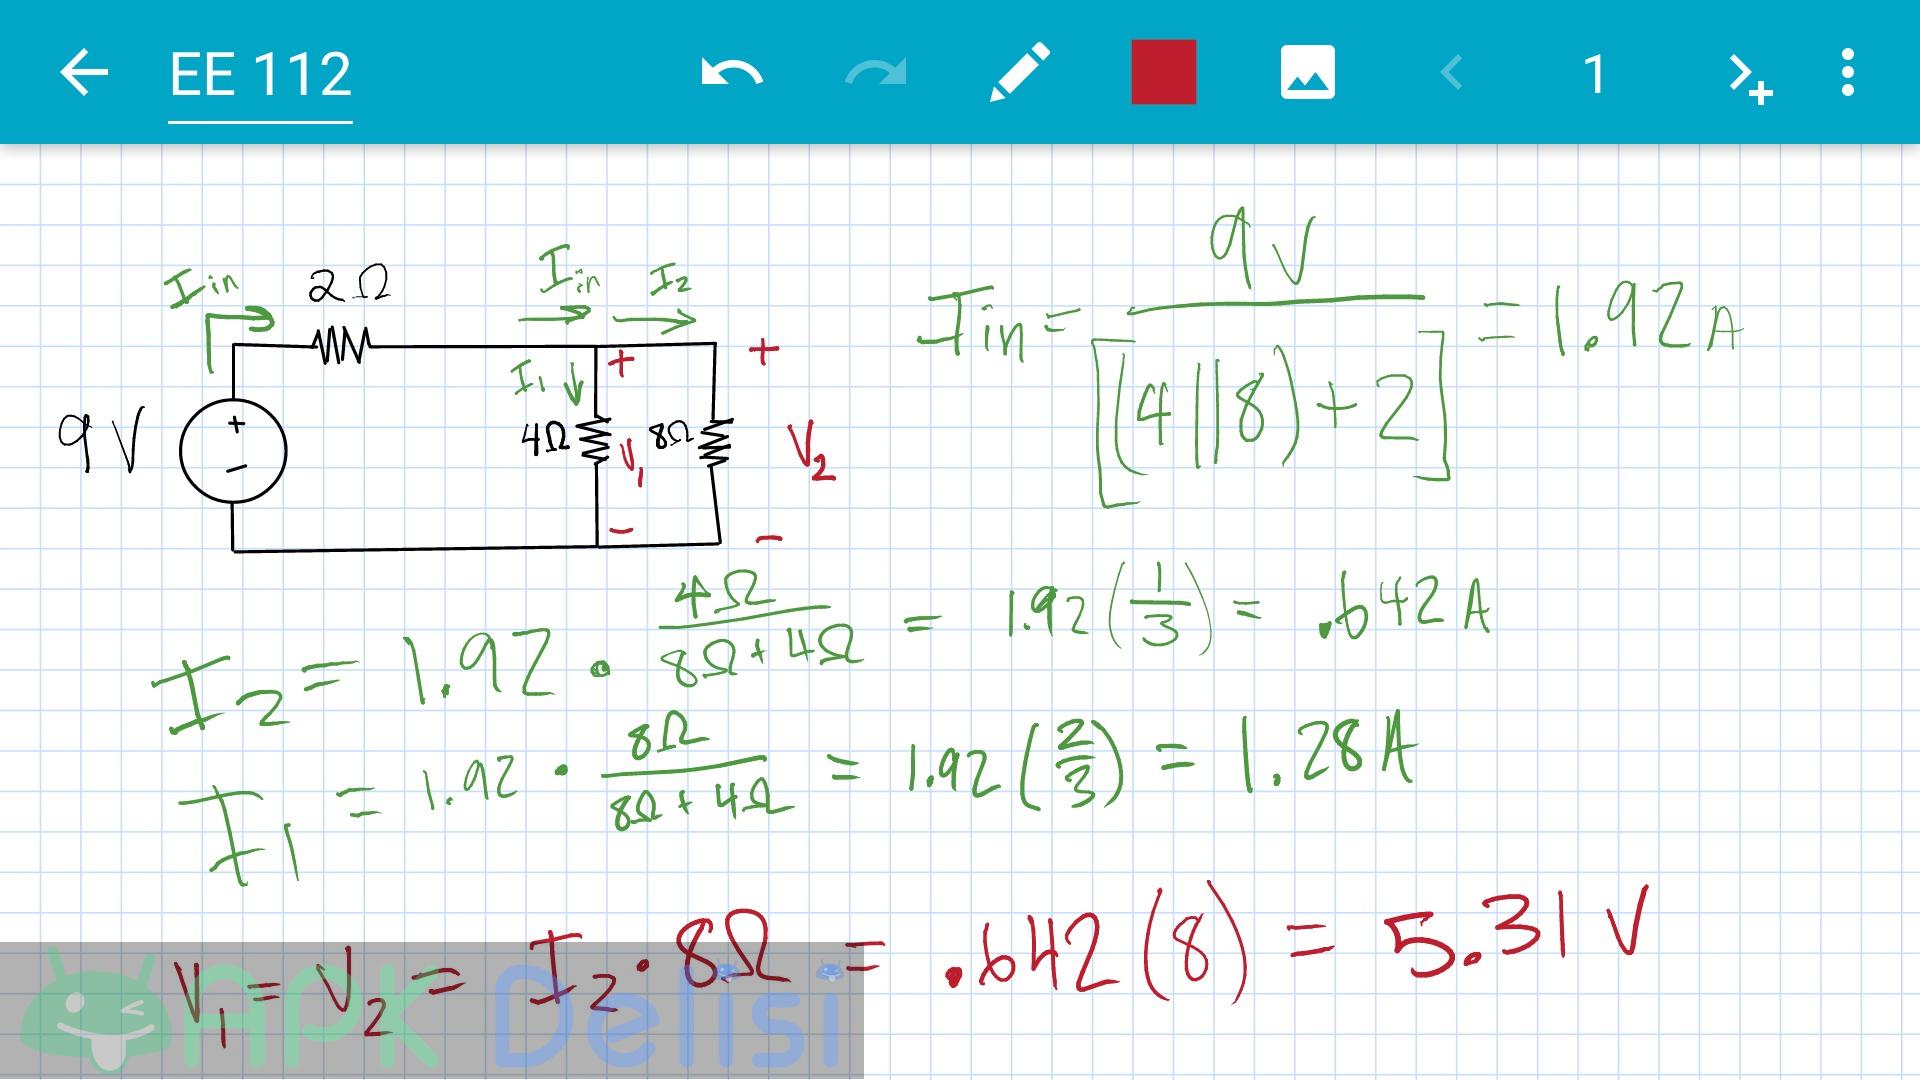 EE 112
1
Iin 2Ω Iin I2
9V + - I1 4Ω + V1 - 8Ω + V2 -
Iin = 9V / [(4||8)+2] = 1.92 A
I2 = 1.92 • 4Ω / 8Ω+4Ω = 1.92 (1/3) = .642 A
I1 = 1.92 • 8Ω / 8Ω+4Ω = 1.92 (2/3) = 1.28 A
V1 = V2 = I2 • 8Ω = .642 (8) = 5.31 V
APK Delisi